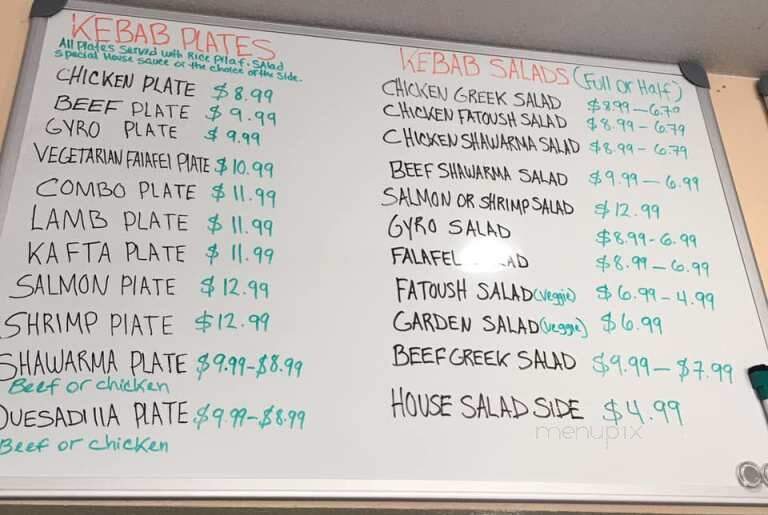 KEBAB PLATES
All Plates Served with Rice Pilaf. SAlad
special House sauce or the choice of the side.
CHICKEN PLATE $8.99
BEEF PLATE $9.99
GYRO PLATE $9.99
VEGETARIAN FAlAFEl PlATE $10.99
COMBO PLATE $11.99
LAMB PLATE $11.99
KAFTA PLATE $11.99
SALMON PlATE $12.99
SHRIMP PlATE $12.99
SHAWARMA PLATE $9.99-$8.99
Beef or chicken
QUESADIllA PLATE $9.99-$8.99
Beef or chicken
KEBAB SALADS (Full Or Half)
CHICKEN GREEK SALAD $8.99-6.79
CHICKEN FATOUSH SALAD $8.99-6.79
CHICKEN SHAWARMA SALAD $8.99-6.79
BEEF SHAWARMA SALAD $9.99-6.99
SALMON OR SHRIMP SALAD $12.99
GYRO SALAD $8.99-6.99
FALAFEL AD $8.99-6.99
FATOUSH SALAD (veggie) $6.99-4.99
GARDEN SALAD (veggie) $6.99
BEEF GREEK SALAD $9.99-$7.99
HOUSE SALAD SIDE $4.99
menupix